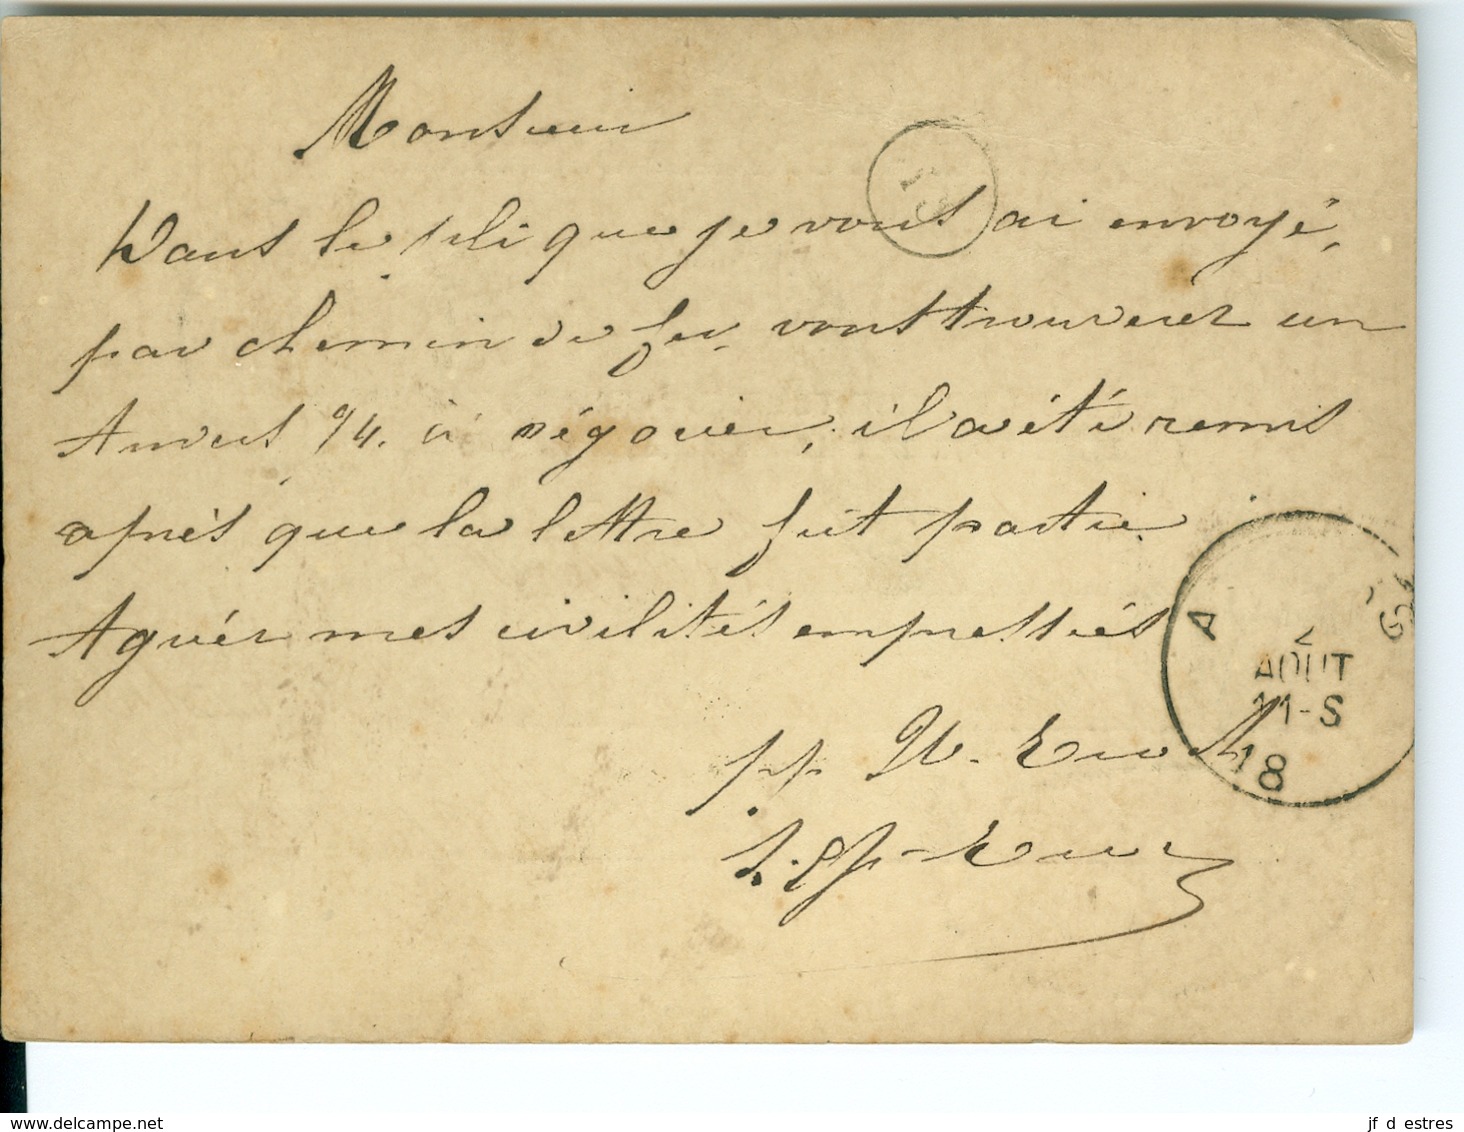 Monsieur
Dans le pli que je vous ai envoyé,
par chemin de fer, vous trouverez un
Anvers 9/4. à négocier, il a été remis
après que la lettre fut partie
Agréez mes civilités empressées
pp
13
A
2
AOÛT
11-S
18
www.delcampe.net
jf d estres